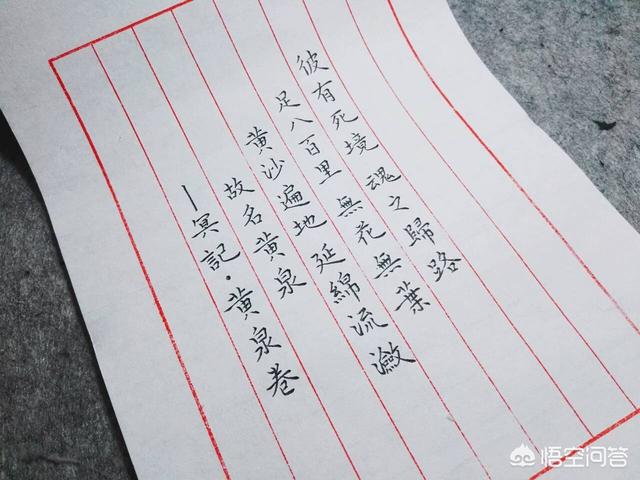 彼有死境魂之歸路
足八百里無花無葉
黄沙遍地延綿流瀲
故名黄泉
—冥記·黄泉卷
悟空问答